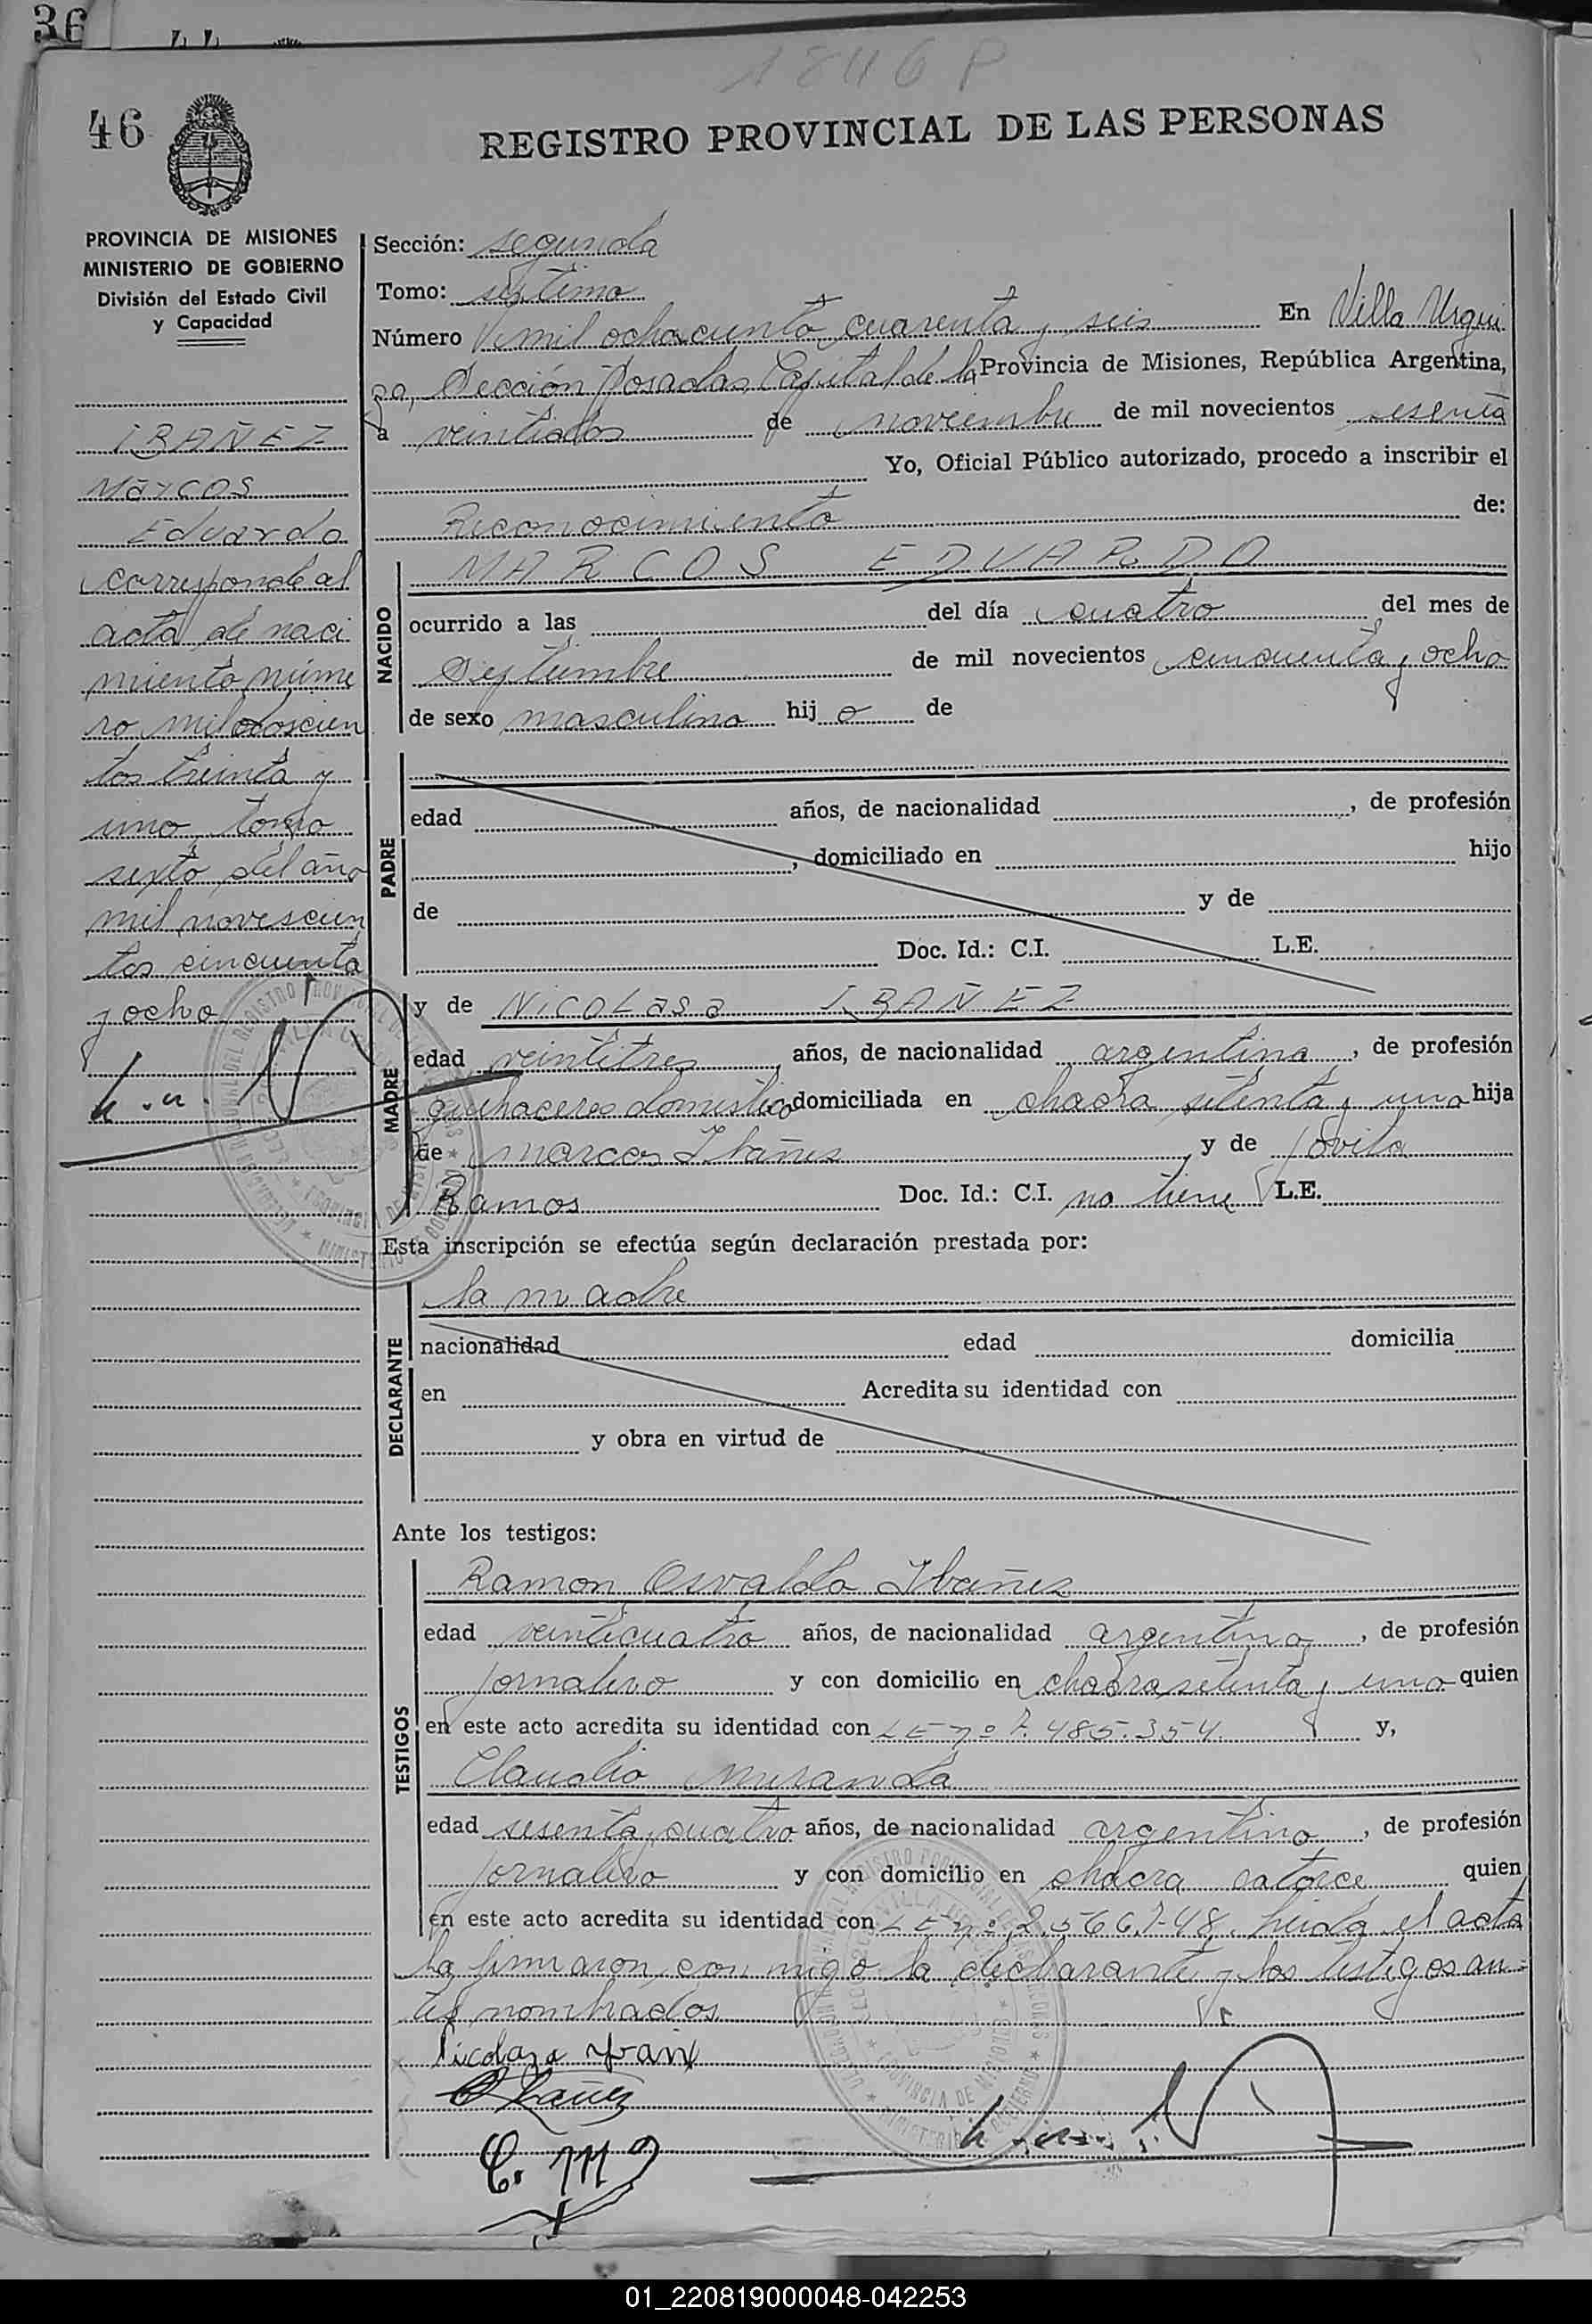 36
1846 P
46
REGISTRO PROVINCIAL DE LAS PERSONAS
PROVINCIA DE MISIONES
MINISTERIO DE GOBIERNO
División del Estado Civil
y Capacidad
IBAÑEZ
Marcos
Eduardo
corresponde al
acta de naci
miento núme
ro mil doscien
tos treinta y
uno, tomo
sexto del año
mil novescien
tos cincuenta
y ocho
Sección: segunda
Tomo: séptimo
Número mil ochocientos cuarenta y seis En Villa Urqui
za, Sección Posadas, Capital de la Provincia de Misiones, República Argentina,
a veintidos de noviembre de mil novecientos sesenta
Yo, Oficial Público autorizado, procedo a inscribir el
Reconocimiento de:
NACIDO
MARCOS EDUARDO
ocurrido a las del día cuatro del mes de
Septiembre de mil novecientos cincuenta y ocho
de sexo masculino hij o de
PADRE
edad años, de nacionalidad , de profesión
, domiciliado en hijo
de y de
Doc. Id.: C.I. L.E.
MADRE
y de Nicolasa IBAÑEZ
edad veintitres, años, de nacionalidad argentina, de profesión
quehaceres domestico domiciliada en chacra setenta y una hija
de Marcos Ibañez y de Jovita
Ramos Doc. Id.: C.I. no tiene L.E.
Esta inscripción se efectúa según declaración prestada por:
DECLARANTE
la madre
nacionalidad edad domicilia
en Acredita su identidad con
y obra en virtud de
Ante los testigos:
TESTIGOS
Ramon Osvaldo Ibañez
edad veinticuatro años, de nacionalidad argentino, de profesión
jornalero y con domicilio en chacra setenta y una quien
en este acto acredita su identidad con LE nº 7.485.354. y,
Claudio Miranda
edad sesenta y cuatro años, de nacionalidad argentino, de profesión
jornalero y con domicilio en chacra catorce quien
en este acto acredita su identidad con LE nº 2.566.748. Leida el acta
la firmaron conmigo la declarante y los testigos an-
tes nombrados.
Nicolaza
C. M
01_220819000048-042253